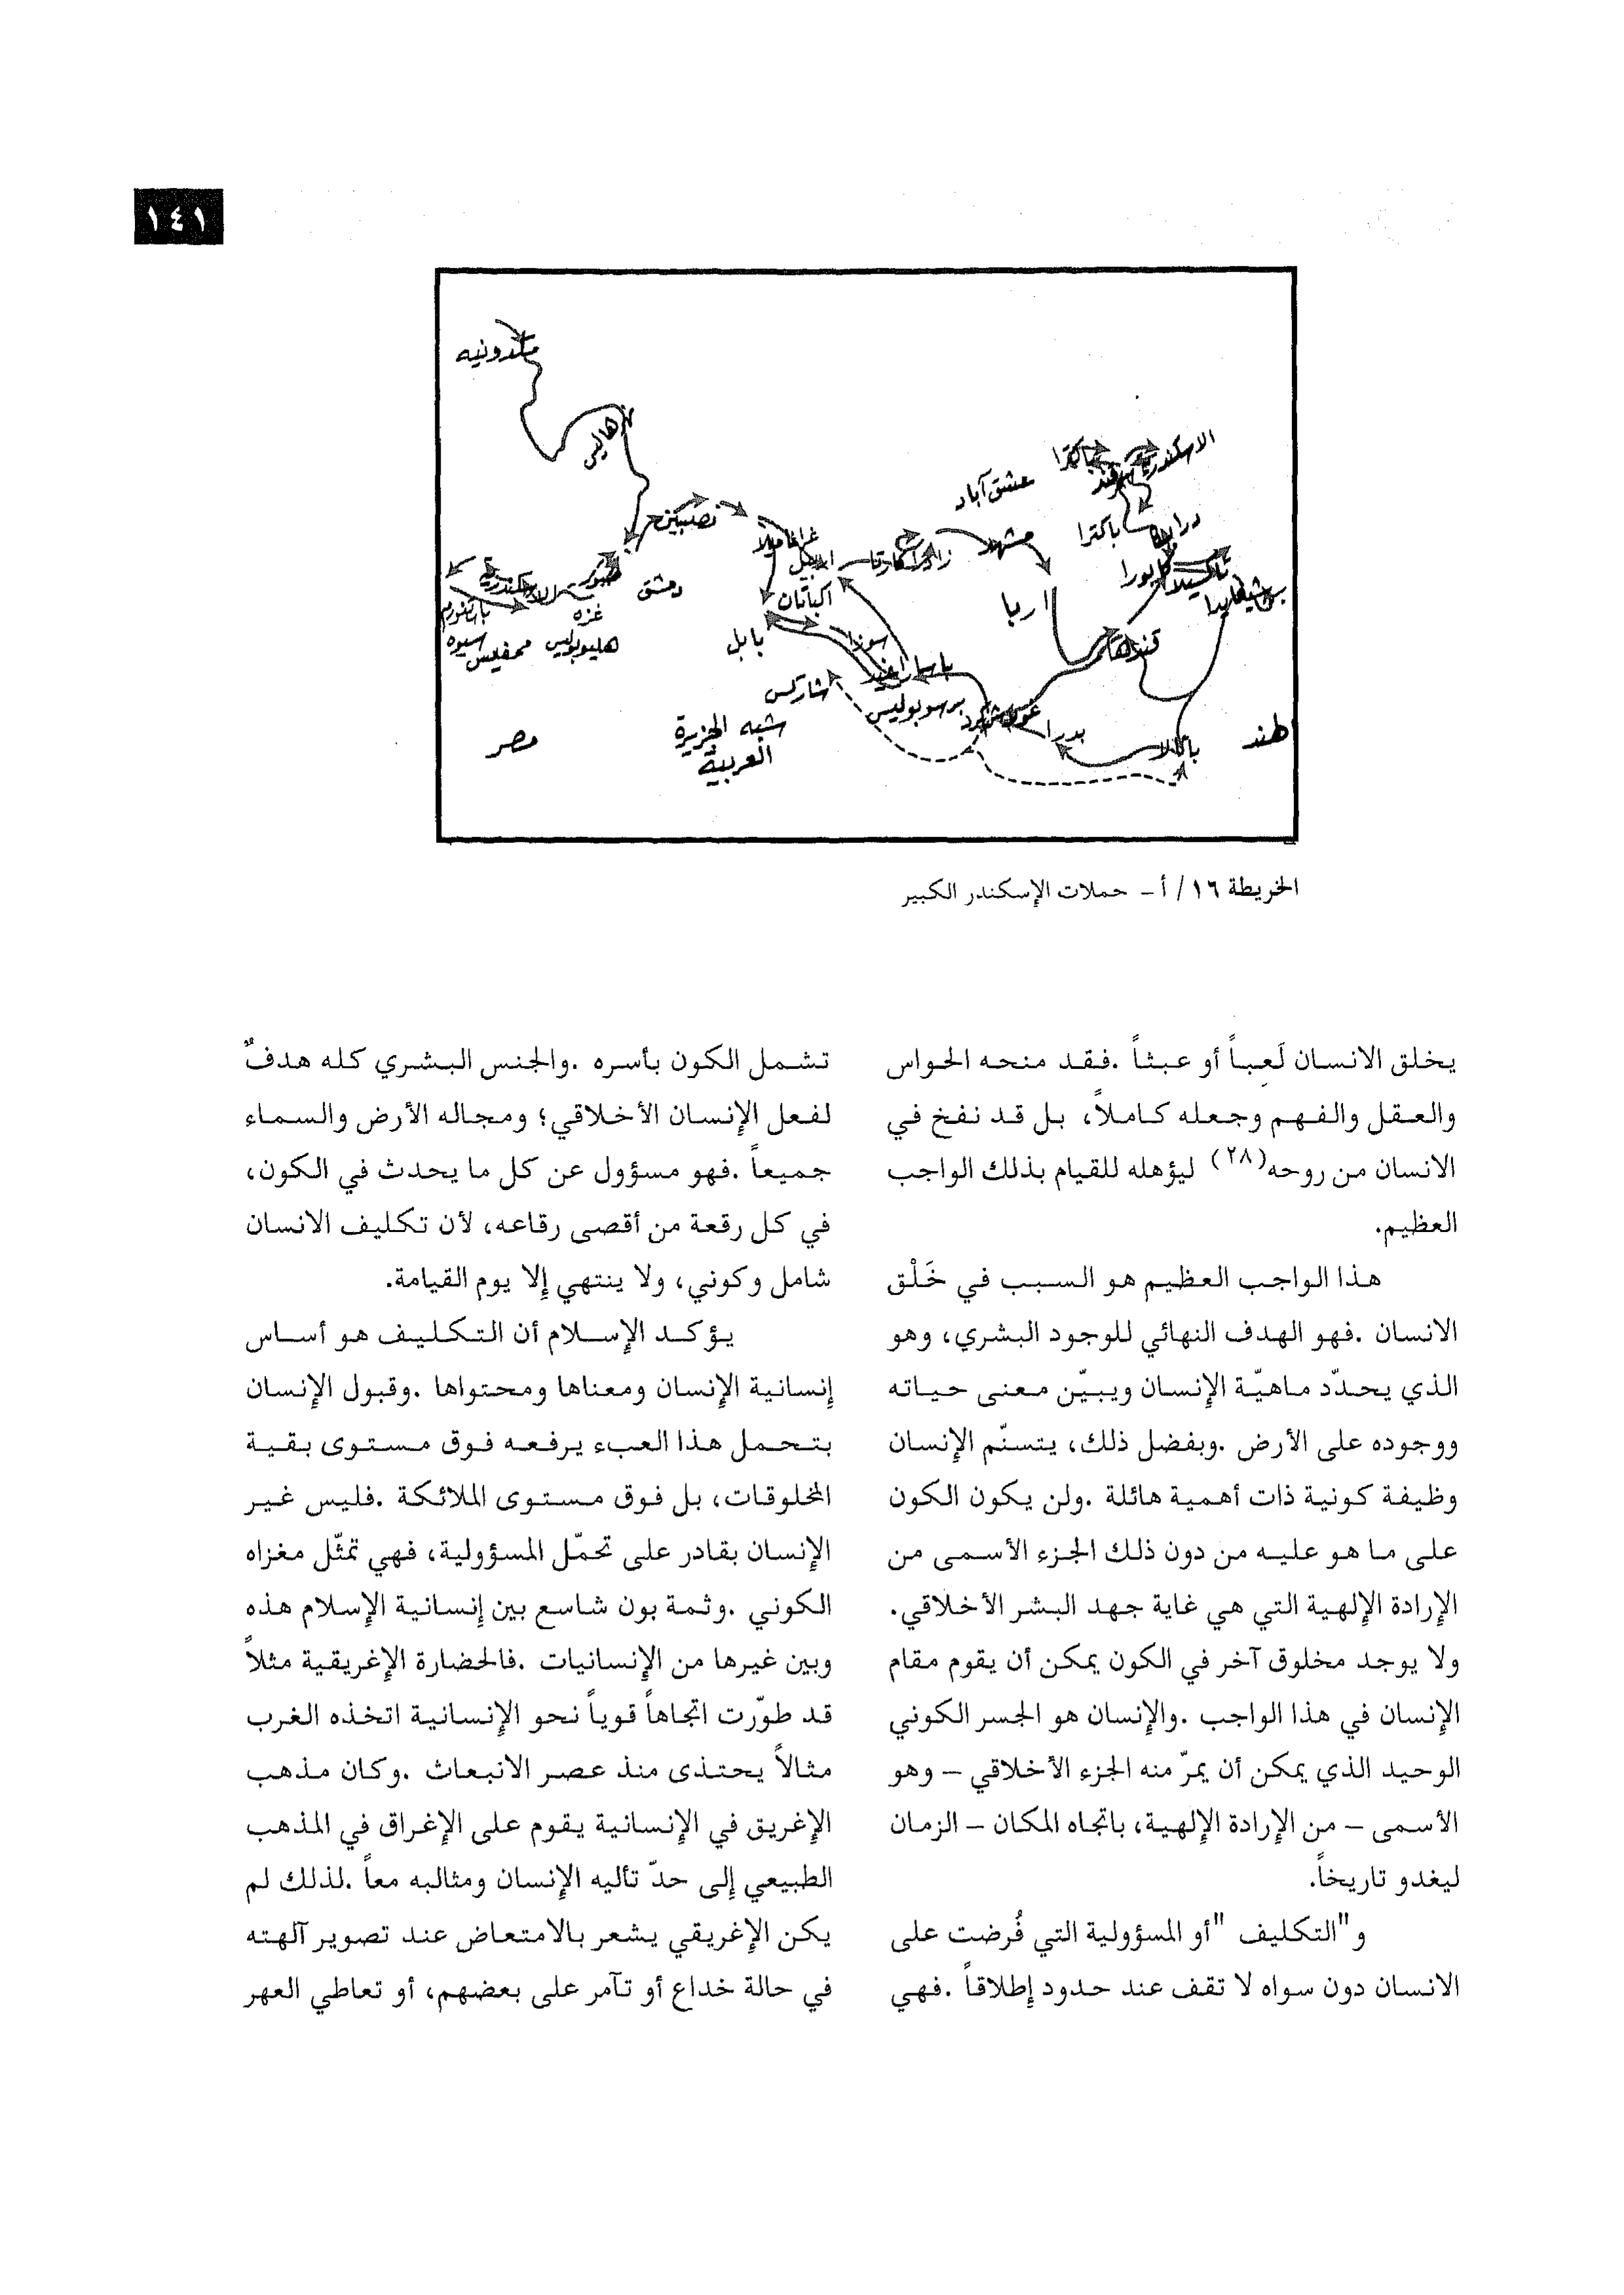 ١٤١
مكدونيه
نهر هاليس
نصيبين
غاغاميلا
اربيل
اكباتان
بابل
سوزا
شاركس
برسوبوليس
زادراكارتا
مشهد
عشق آباد
باكترا
الاسكندرية
باكترا
تاكسيلا
اريا
قندهار
بدرا
باتالا
هند
دمشق
صور
غزه
الاسكندرية
هليوبوليس
ممفيس
سيوه
مصر
شبه الجزيرة
العربية
الخريطة ١٦/ أ - حملات الإسكندر الكبير
يخلق الانسان لَعِباً أو عبثاً .فقد منحه الحواس
والعقل والفهم وجعله كاملاً، بل قد نفخ في
الانسان من روحه(٢٨) ليؤهله للقيام بذلك الواجب
العظيم.
هذا الواجب العظيم هو السبب في خَلْق
الانسان .فهو الهدف النهائي للوجود البشري، وهو
الذي يحدّد ماهيّة الإنسان ويبيّن معنى حياته
ووجوده على الأرض .وبفضل ذلك، يتسنّم الإنسان
وظيفة كونية ذات أهمية هائلة .ولن يكون الكون
على ما هو عليه من دون ذلك الجزء الأسمى من
الإرادة الإلهية التي هي غاية جهد البشر الأخلاقي.
ولا يوجد مخلوق آخر في الكون يمكن أن يقوم مقام
الإنسان في هذا الواجب .والإنسان هو الجسر الكوني
الوحيد الذي يمكن أن يمرّ منه الجزء الأخلاقي – وهو
الأسمى – من الإرادة الإلهية، باتجاه المكان – الزمان
ليغدو تاريخاً.
و"التكليف "أو المسؤولية التي فُرضت على
الانسان دون سواه لا تقف عند حدود إطلاقاً .فهي
تشمل الكون بأسره .والجنس البشري كله هدفٌ
لفعل الإنسان الأخلاقي؛ ومجاله الأرض والسماء
جميعاً .فهو مسؤول عن كل ما يحدث في الكون،
في كل رقعة من أقصى رقاعه، لأن تكليف الانسان
شامل وكوني، ولا ينتهي إلا يوم القيامة.
يؤكد الإسلام أن التكليف هو أساس
إنسانية الإنسان ومعناها ومحتواها .وقبول الإنسان
بتحمل هذا العبء يرفعه فوق مستوى بقية
المخلوقات، بل فوق مستوى الملائكة .فليس غير
الإنسان بقادر على تحمّل المسؤولية، فهي تمثّل مغزاه
الكوني .وثمة بون شاسع بين إنسانية الإسلام هذه
وبين غيرها من الإنسانيات .فالحضارة الإغريقية مثلاً
قد طوّرت اتجاهاً قوياً نحو الإنسانية اتخذه الغرب
مثالاً يحتذى منذ عصر الانبعاث .وكان مذهب
الإغريق في الإنسانية يقوم على الإغراق في المذهب
الطبيعي إلى حدّ تأليه الإنسان ومثالبه معاً .لذلك لم
يكن الإغريقي يشعر بالامتعاض عند تصوير آلهته
في حالة خداع أو تآمر على بعضهم، أو تعاطي العهر